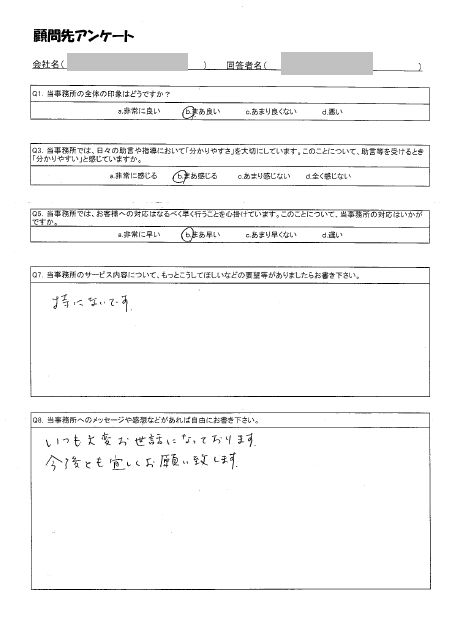 顧問先アンケート
会社名( ) 回答者名( )
Q1. 当事務所の全体の印象はどうですか？
a.非常に良い b.まあ良い c.あまり良くない d.悪い
Q3. 当事務所では、日々の助言や指導において「分かりやすさ」を大切にしています。このことについて、助言等を受けるとき
「分かりやすい」と感じていますか。
a.非常に感じる b.まあ感じる c.あまり感じない d.全く感じない
Q5. 当事務所では、お客様への対応はなるべく早く行うことを心掛けています。このことについて、当事務所の対応はいかが
ですか。
a.非常に早い b.まあ早い c.あまり早くない d.遅い
Q7. 当事務所のサービス内容について、もっとこうしてほしいなどの要望等がありましたらお書き下さい。
特にないです.
Q8. 当事務所へのメッセージや感想などがあれば自由にお書き下さい。
いつも大変お世話になっております.
今後とも宜しくお願い致します.